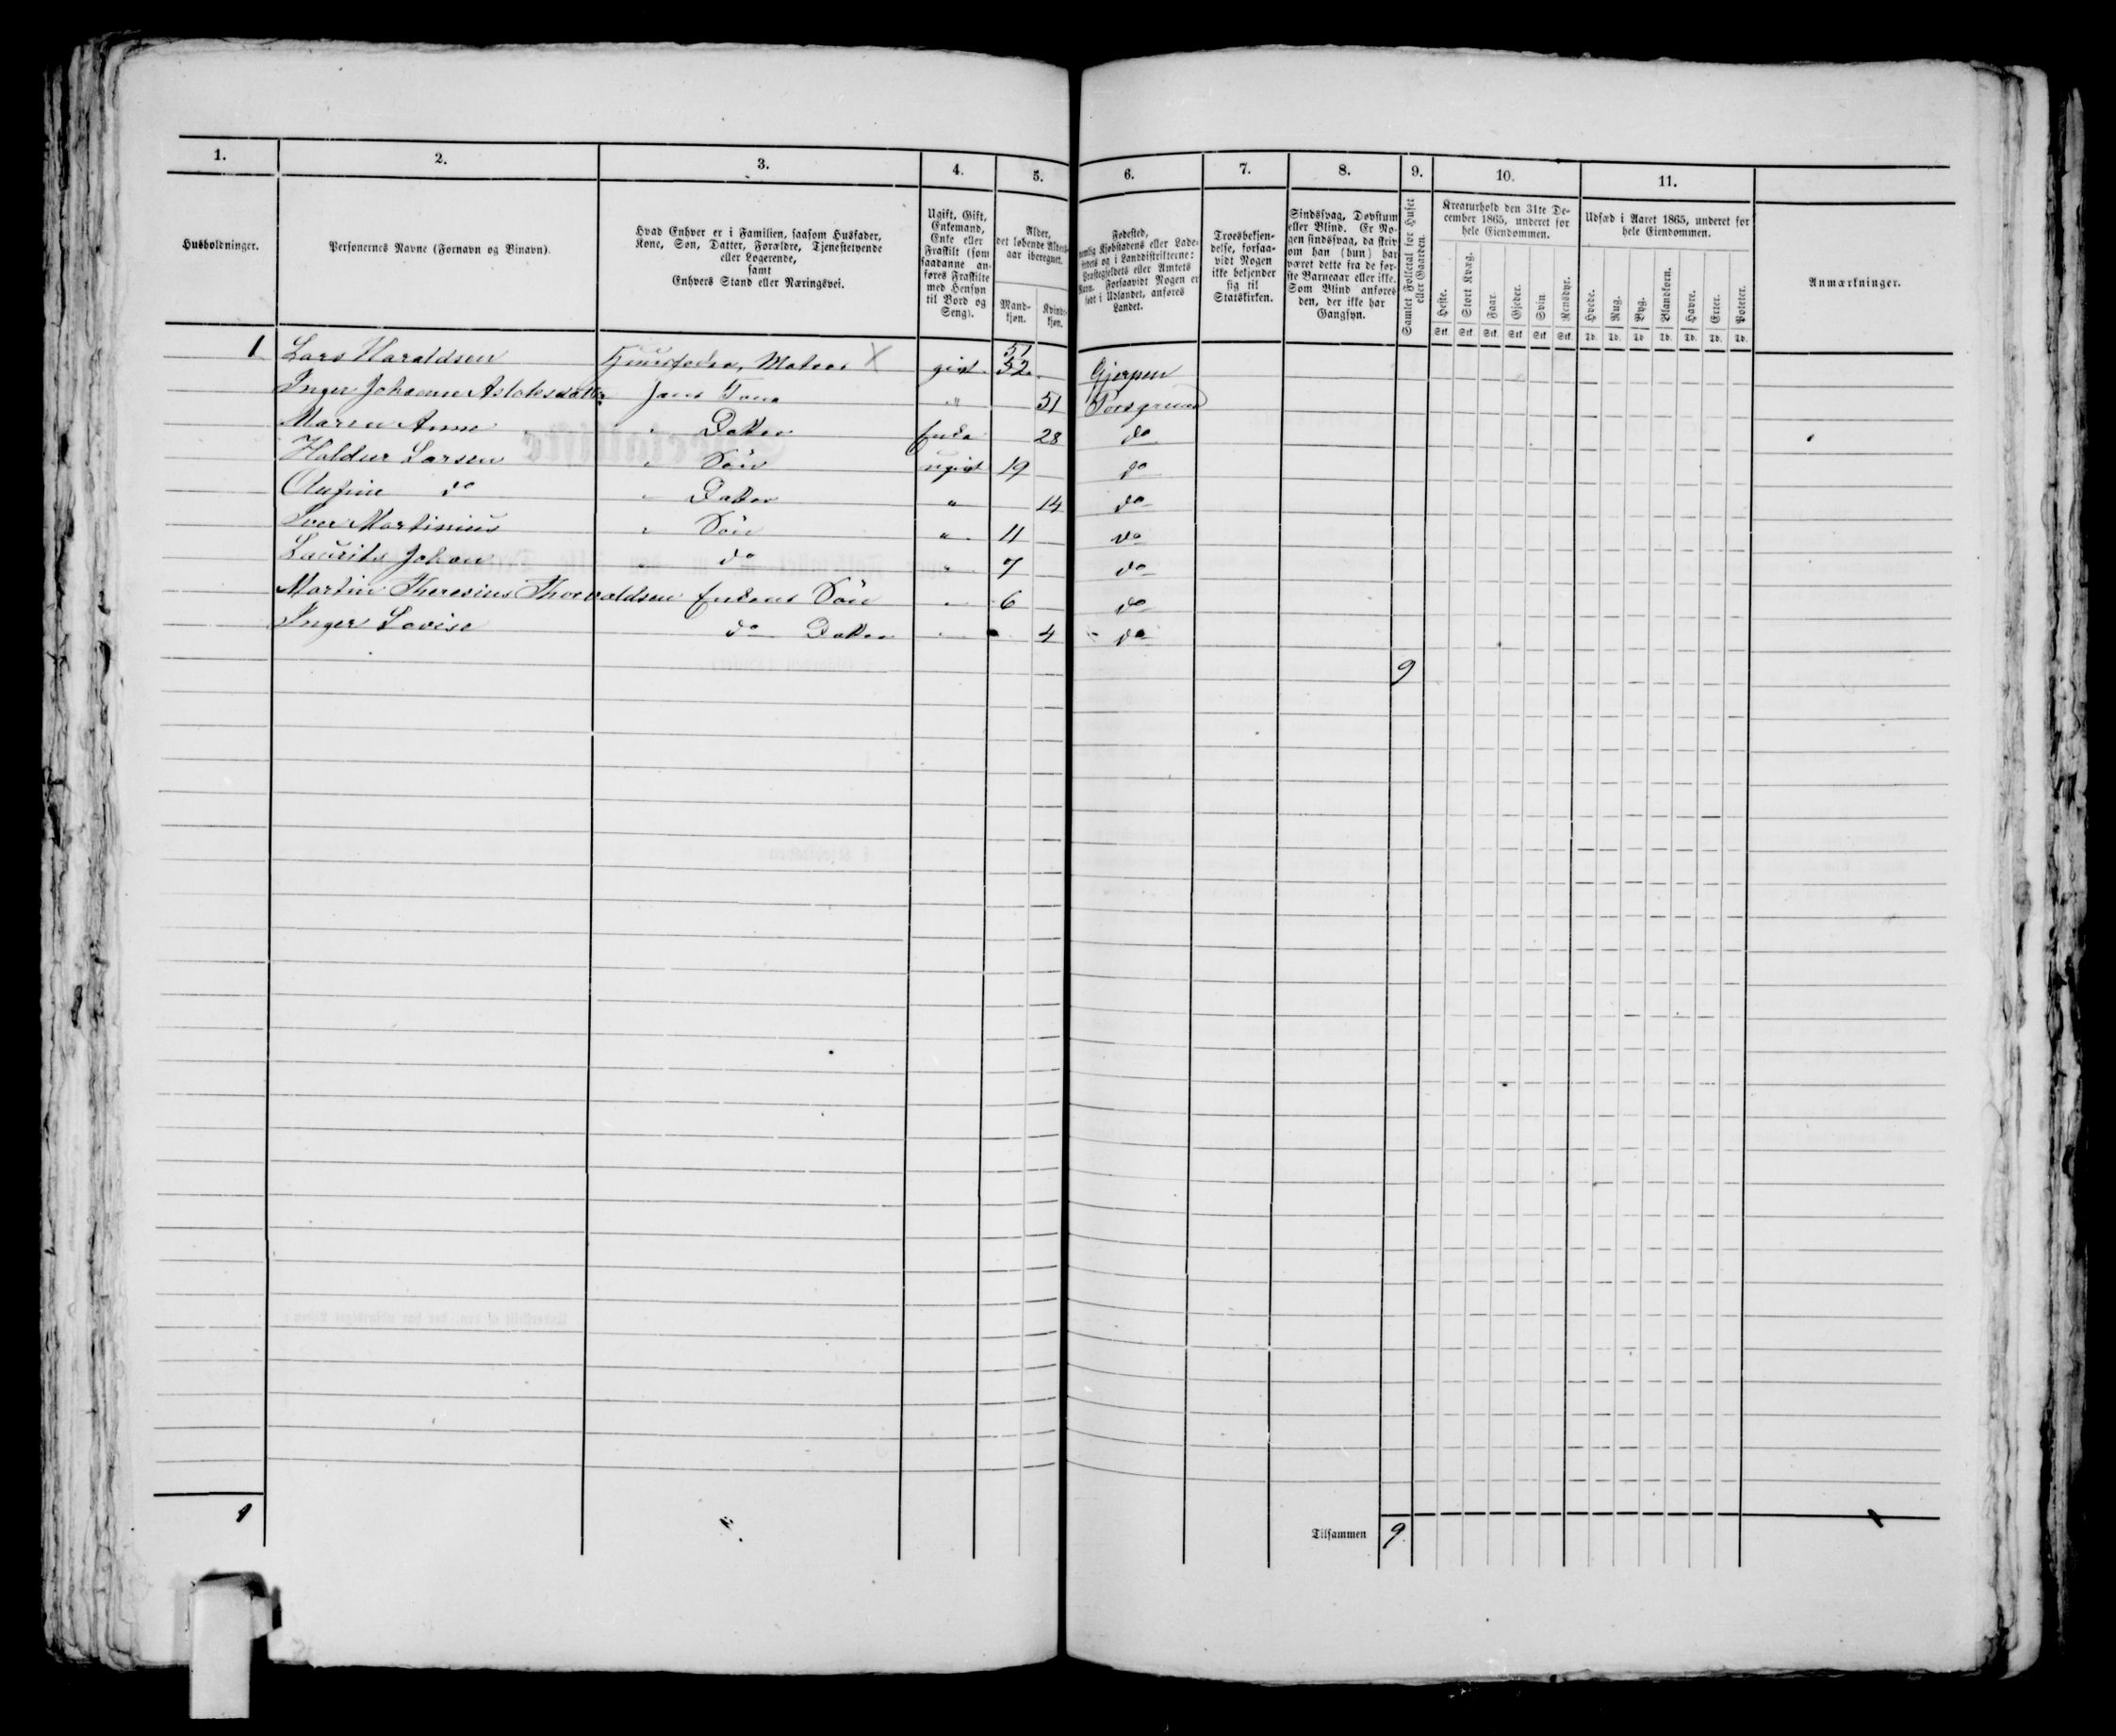 1. 2. 3. 4. 5. 6. 7. 8. 9. 10. 11.
Husholdninger.
Personernes Navne (Fornavn og Binavn).
Hvad Enhver er i Familien, saasom Husfader,
Kone, Søn, Datter, Forældre, Tjenestetyende
eller Logerende,
samt
Enhvers Stand eller Næringsvei.
Ugift, Gift,
Enkemand,
Enke eller
Fraskilt (som
saadanne an-
føres Fraskilte
med Hensyn
til Bord og
Seng).
Alder,
det løbende Alders-
aar iberegnet.
Mand-
kjøn.
Kvind-
kjøn.
Fødested,
nemlig Kjøbstadens eller Lade-
stedets og i Landdistrikterne:
Præstegjeldets eller Amtets
Navn. Forsaavidt Nogen er
født i Udlandet, anføres
Landet.
Troesbekjen-
delse, forsaa-
vidt Nogen
ikke bekjender
sig til
Statskirken.
Sindssvag, Døvstum
eller Blind. Er No-
gen sindssvag, da skriv
om han (hun) har
været dette fra de før-
ste Barneaar eller ikke.
Som Blind anføres
den, der ikke har
Gangsyn.
Samlet Folketal for Huset
eller Gaarden.
Kreaturhold den 31te De-
cember 1865, underet for
hele Eiendommen.
Heste. Stort Kvæg. Faar. Gjeder. Svin. Rensdyr.
Stk. Stk. Stk. Stk. Stk. Stk.
Udsæd i Aaret 1865, underet for
hele Eiendommen.
Hvede. Rug. Byg. Blandkorn. Havre. Erter. Poteter.
Td. Td. Td. Td. Td. Td. Td.
Anmærkninger.
1 Lars Haraldsen Huusfader, Matros X givt 51 52 Gjerpen
Inger Johanne Aslaksdatter hans Kone " 51 Porsgrund
Maren Anne " Datter Enke 28 do
Haldur Larsen " Søn ugivt 19 do
Olufine do " Datter " 14 do
Iver Martinius " Søn " 11 do
Laurits Johan do " 7 do
Martin Theresius Thorvaldsen Enkens Søn " 6 do
Inger Lovise do Datter " 4 do
9
1
Tilsammen 9